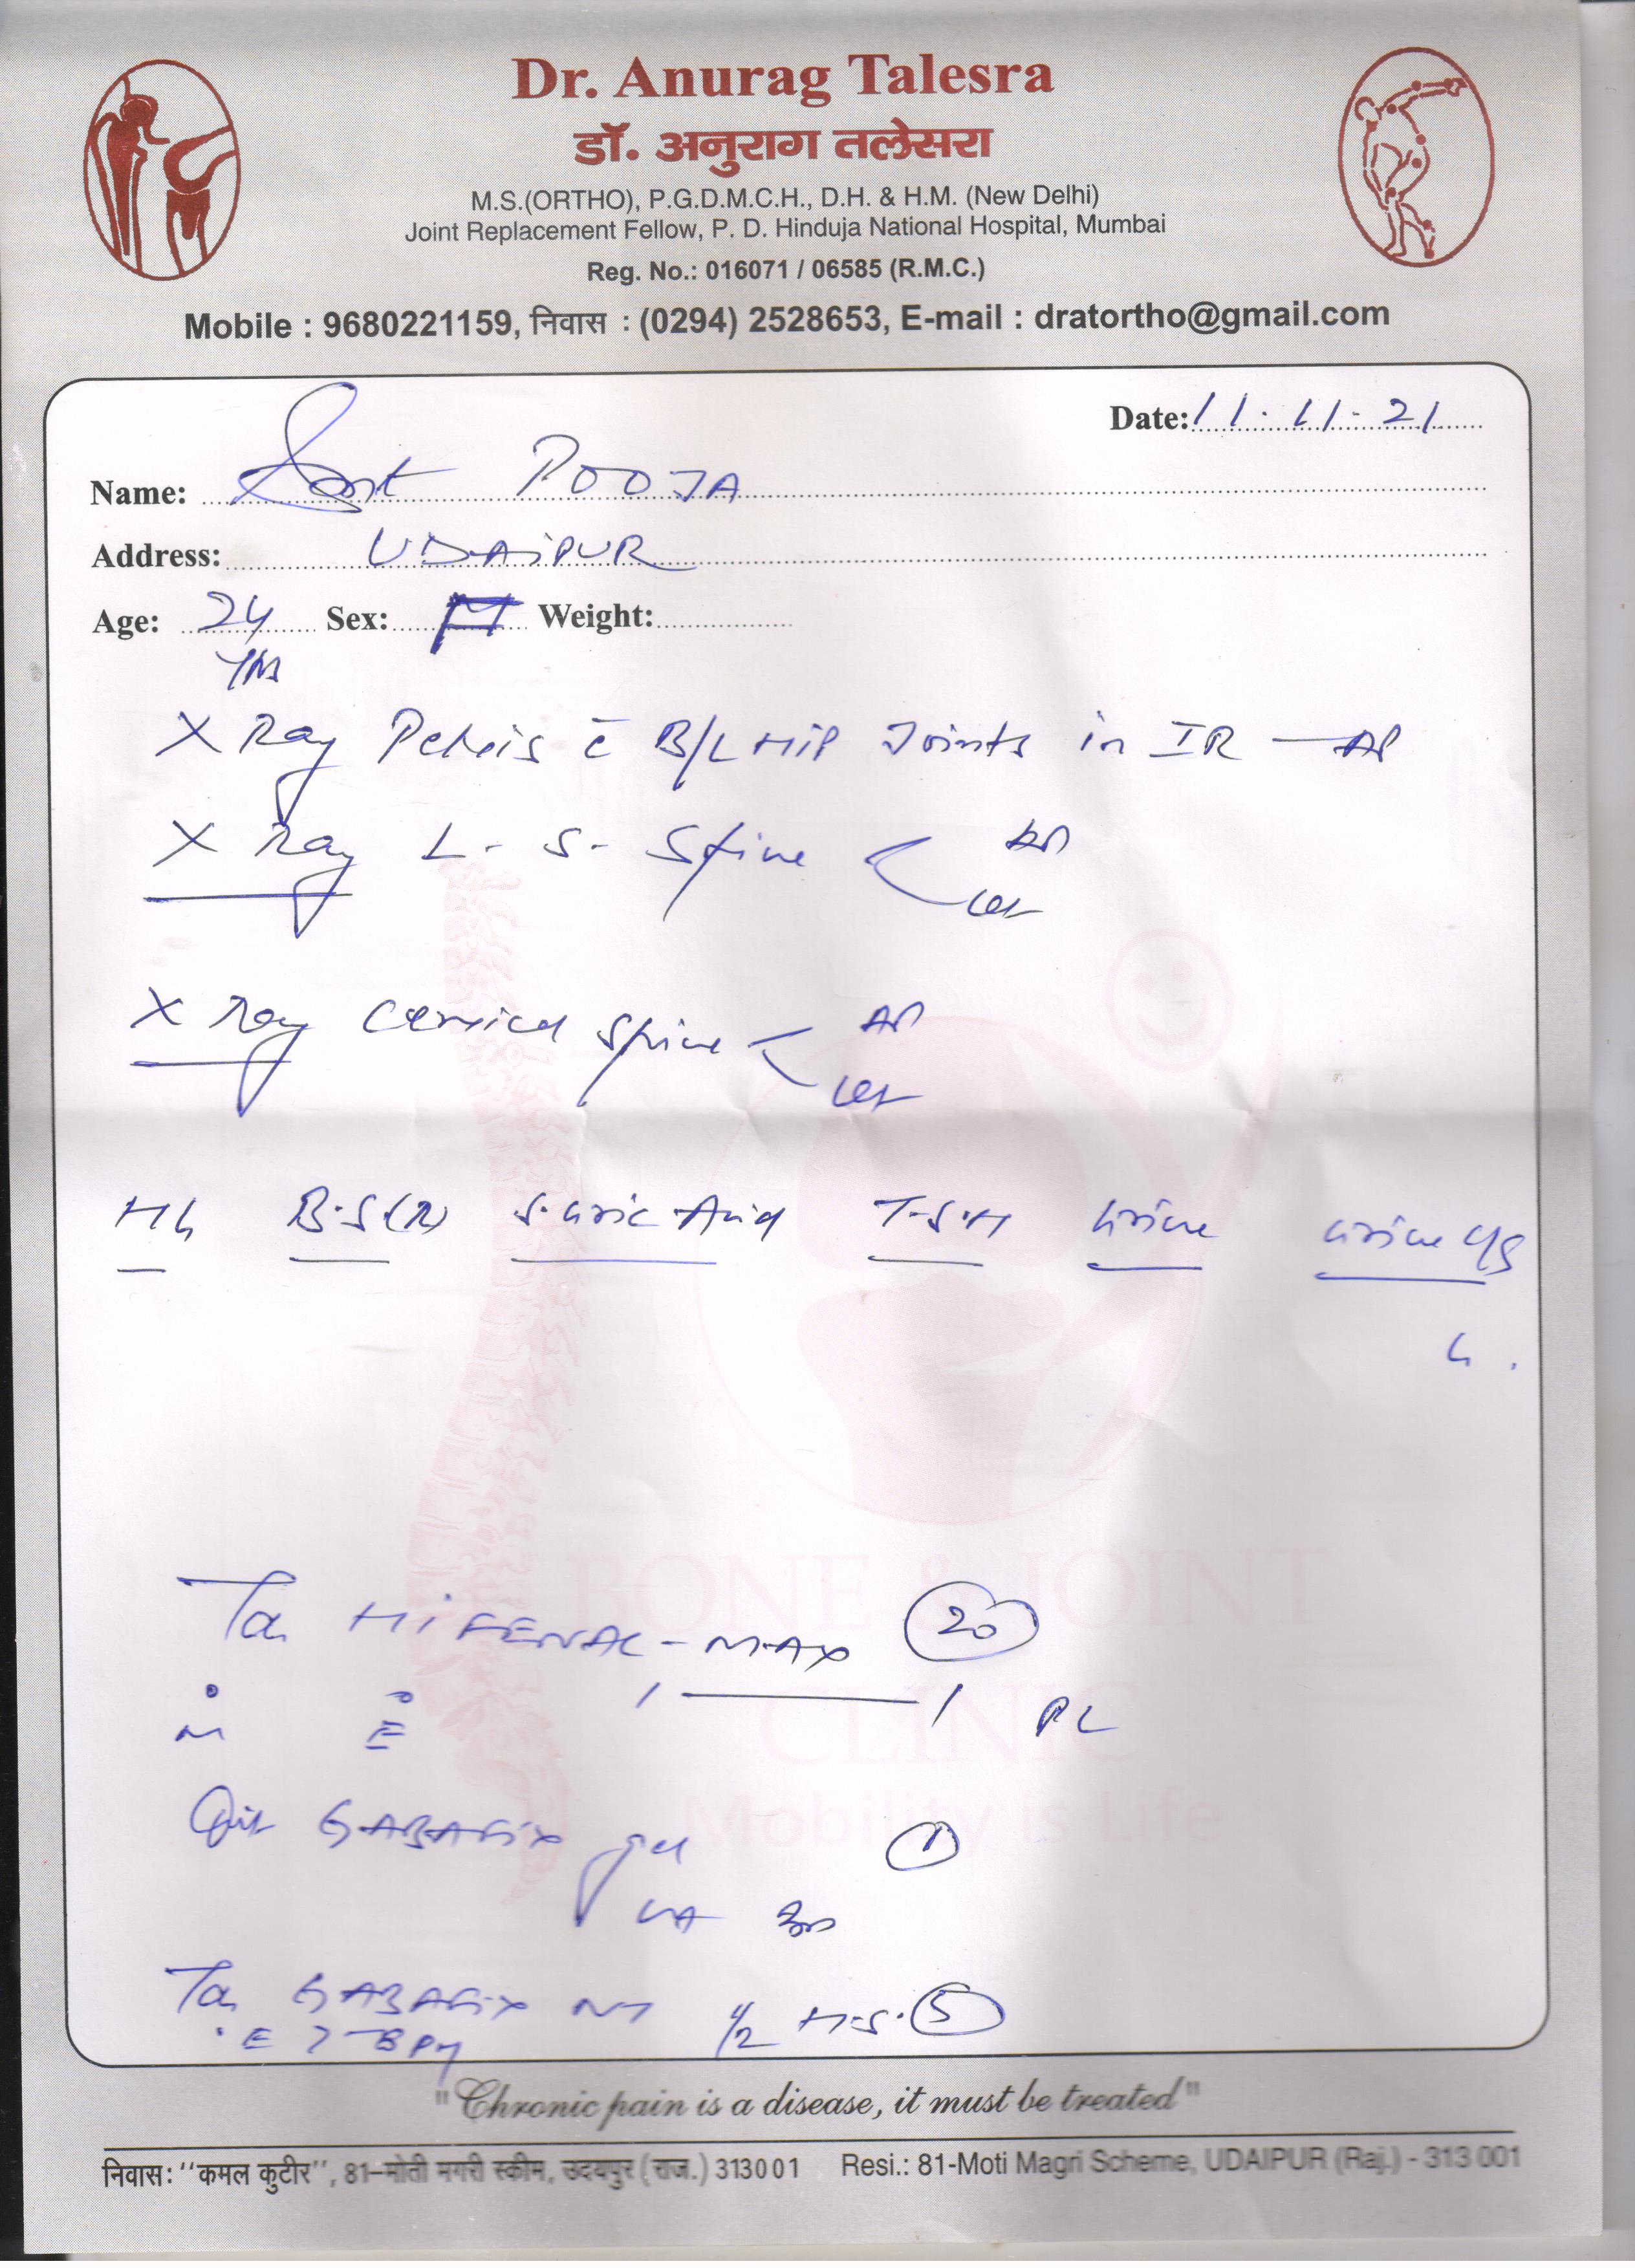 Dr. Anurag Talesra
डॉ. अनुराग तलेसरा
M.S.(ORTHO), P.G.D.M.C.H., D.H. & H.M. (New Delhi)
Joint Replacement Fellow, P. D. Hinduja National Hospital, Mumbai
Reg. No.: 016071 / 06585 (R.M.C.)
Mobile : 9680221159, निवास : (0294) 2528653, E-mail : dratortho@gmail.com
Date: 11.11.21
Name: POOJA
Address: UDAiPUR
Age: 24 Sex: Weight:
X Ray Pelvis c̄ B/L HiP Joints in IR — AP
X Ray L-S-Spine < AP
Lat
X Ray Cervical Spine < AP
Lat
Hb B.S(R) S.Uric Acid T.S.H Urine Urine C/S
BONE & JOINT
Ta HiFENAC-MAX 20
M E 1 — 1 PC
CLINIC
GABAFix gel 1
Mobility is Life
LA
Ta GABAFix NT 1/2 H.S. 5
"Chronic pain is a disease, it must be treated"
निवास: "कमल कुटीर", 81-मोती मगरी स्कीम, उदयपुर (राज.) 313001 Resi.: 81-Moti Magri Scheme, UDAIPUR (Raj.) - 313 001